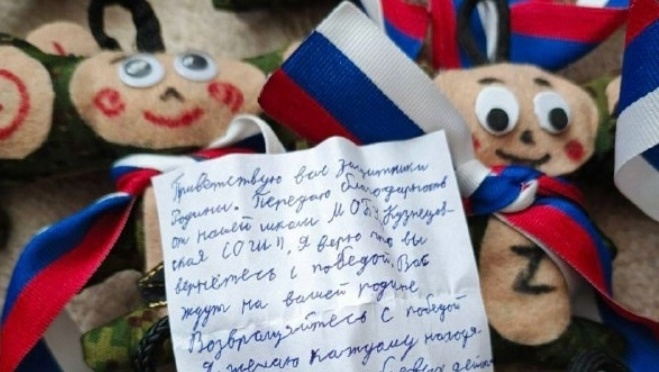 Приветствую вас защитники
Родины. Передаю благодарность
от нашей школы МОБУ Кузнецов-
ская СОШ". Я верю что вы
вернётесь с победой. Вас
ждут на вашей родине
Возвращайтесь с победой
Я желаю каждому находя-
боевых дейст
Z